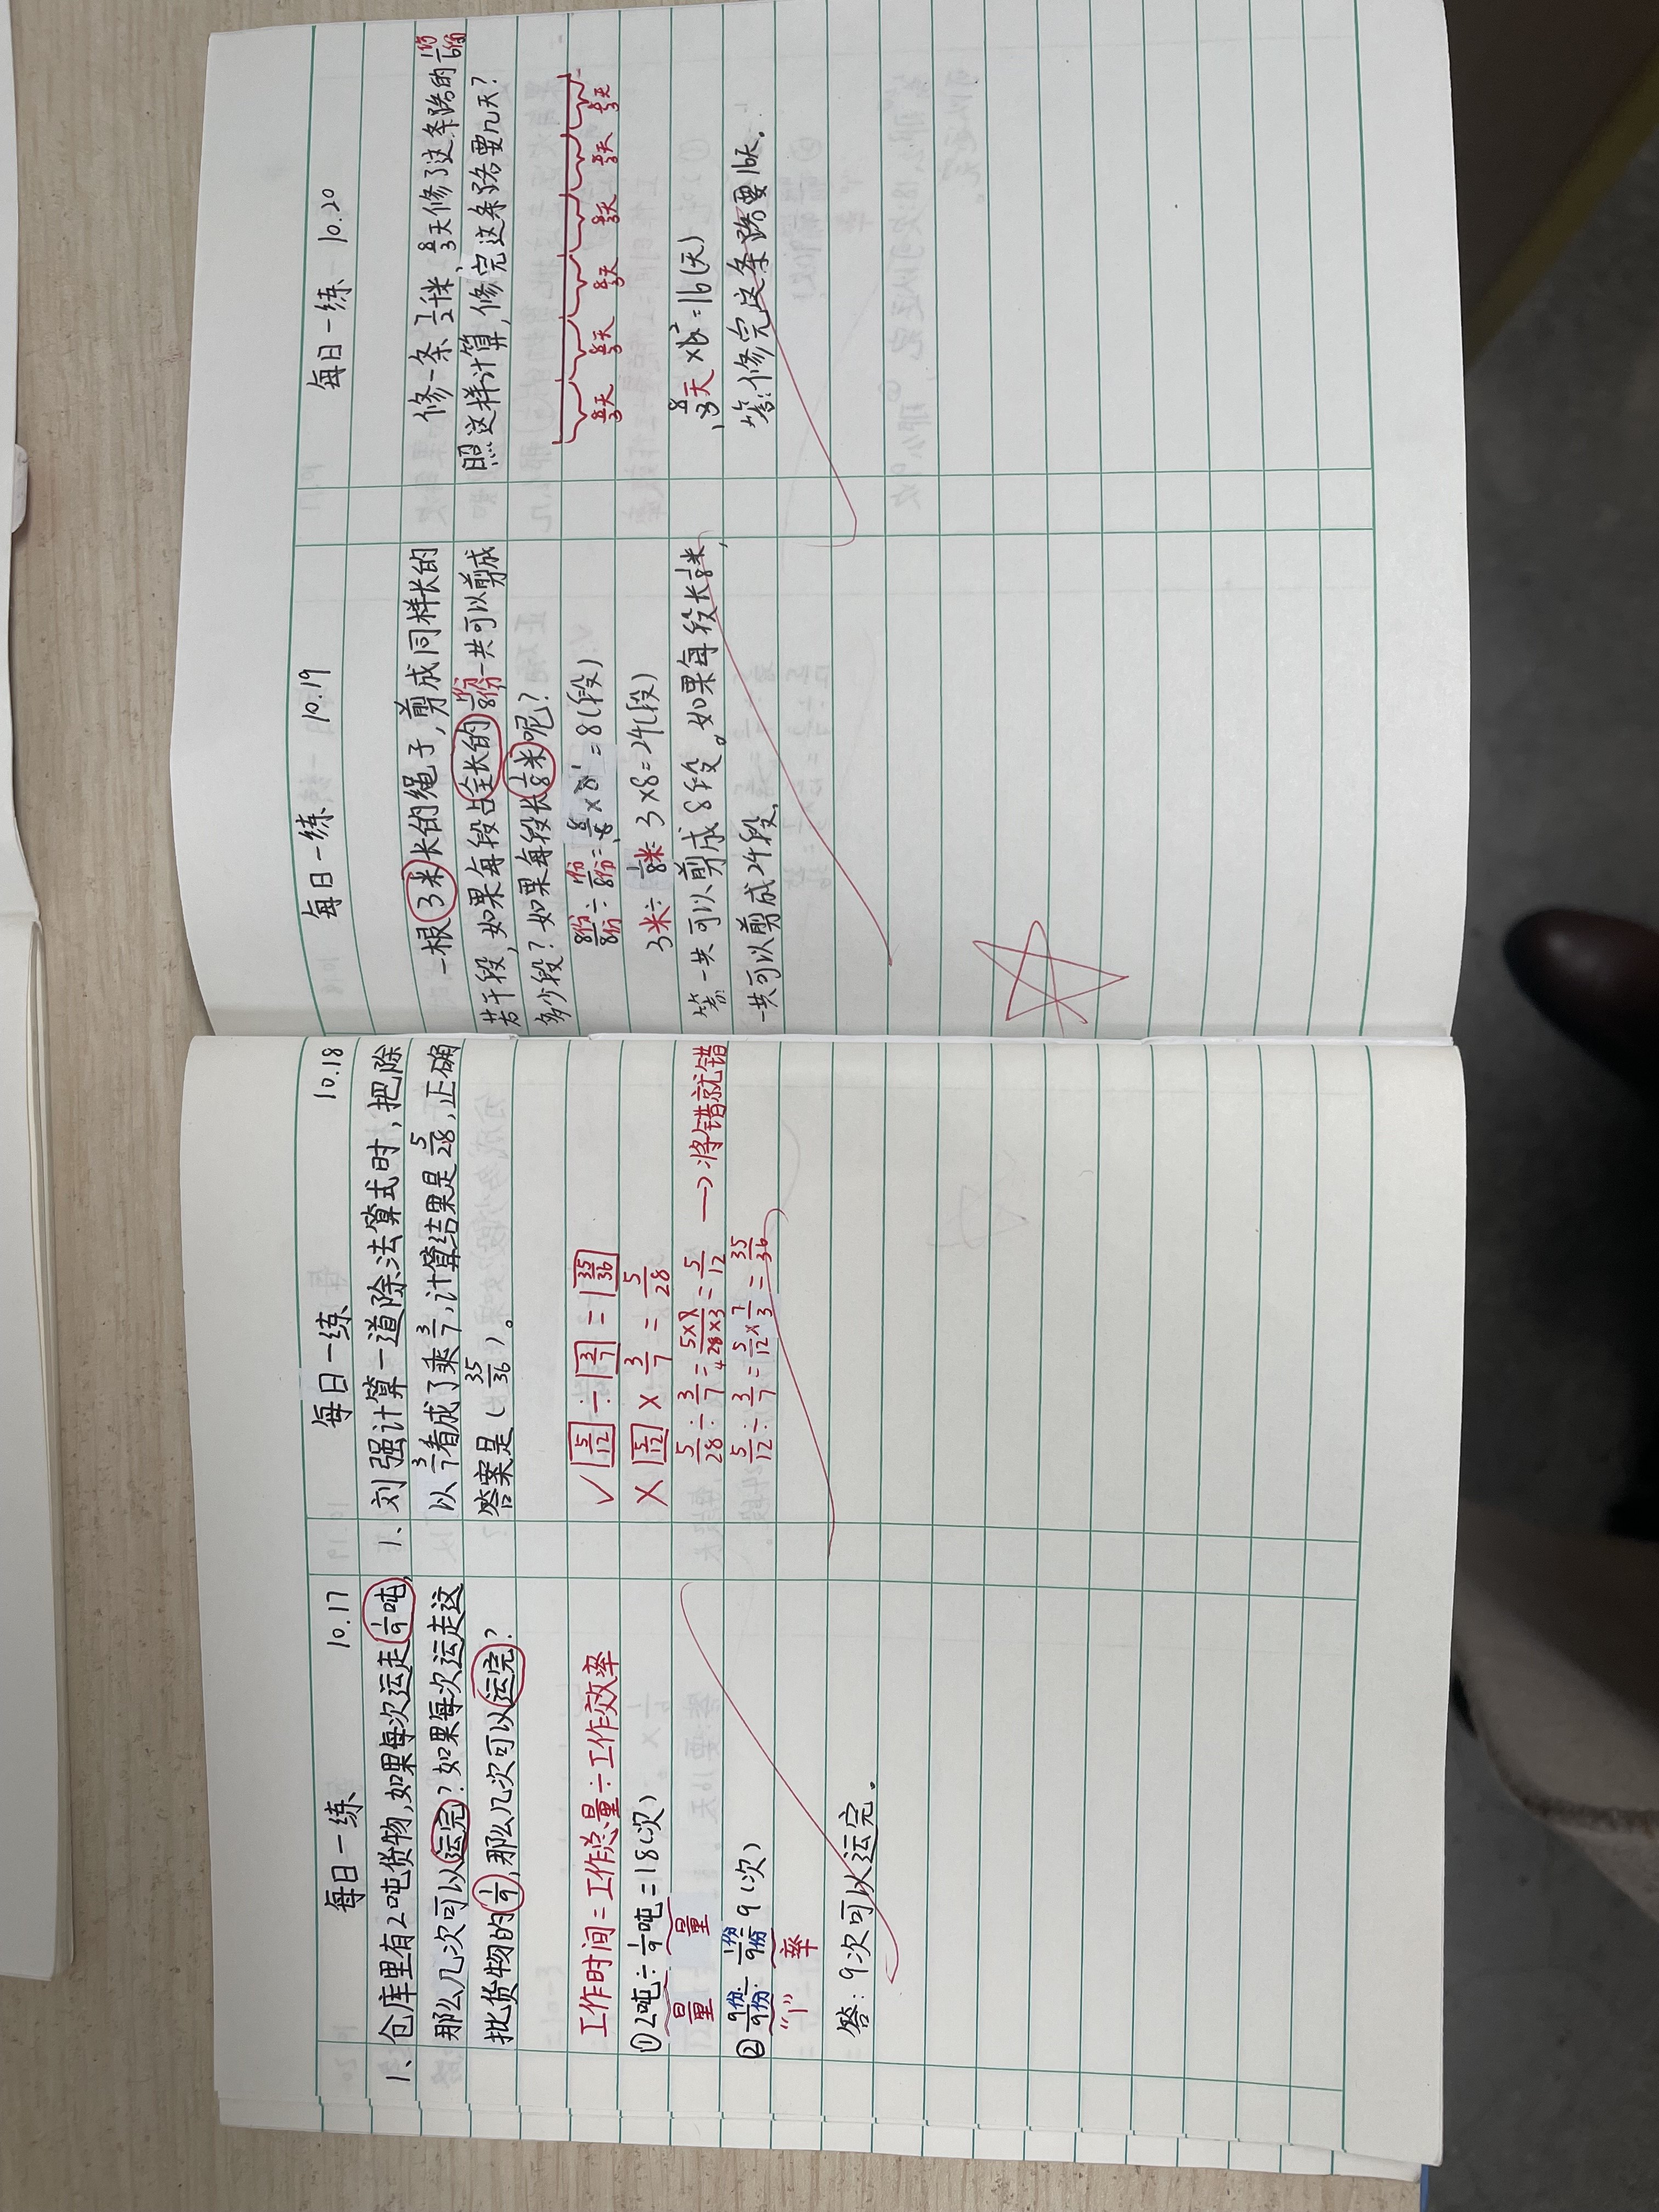 每日一练 10.17
1、仓库里有2吨货物,如果每次运走1/9吨,
那么几次可以运完?如果每次运走这
批货物的1/9,那么几次可以运完?
工作时间=工作总量÷工作效率
①2吨÷1/9吨=18(次)
量 量
②9份/9份÷1份/9份=9(次)
"1" 率
答:9次可以运完.
每日一练 10.18
1、刘强计算一道除法算式时,把除
以3/7看成了乘3/7,计算结果是5/28,正确
答案是(35/36)。
✓ 5/12 ÷ 3/7 = 35/36
× 5/12 × 3/7 = 5/28
5/28÷3/7=5×7/28×3=5/12 →将错就错
4
5/12÷3/7=5/12×7/3=35/36
每日一练 10.19
一根3米长的绳子,剪成同样长的
若干段,如果每段占全长的1份/8份一共可以剪成
多少段?如果每段长1/8米呢?
8份/8份÷1份/8份=8/8×8=8(段)
3米÷1/8米=3×8=24(段)
答:一共可以剪成8段。如果每段长1/8米,
一共可以剪成24段.
每日一练 10.20
修一条7/2千米,8/3天修了这条路的1份/6份
照这样计算,修完这条路要几天?
8/3天 8/3天 8/3天 8/3天 8/3天 8/3天
8/3天×6=16(天)
答:修完这条路要16天.